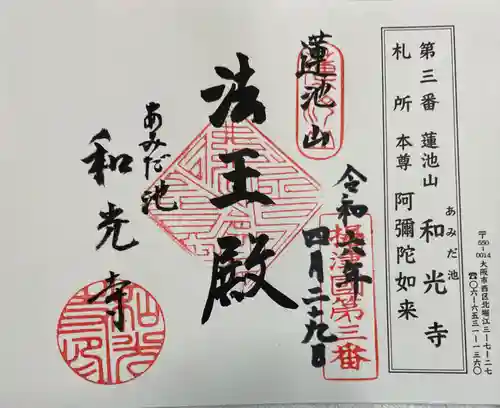 第三番 蓮池山 和光寺
あみだ池
札所 本尊 阿彌陀如来
〒550-0014 大阪市西区北堀江三-七-二七
☎〇六-六五三一-一三六〇
蓮池山
令和六年
四月二十九日
摂津国第三番
法王殿
あみだ池
和光寺